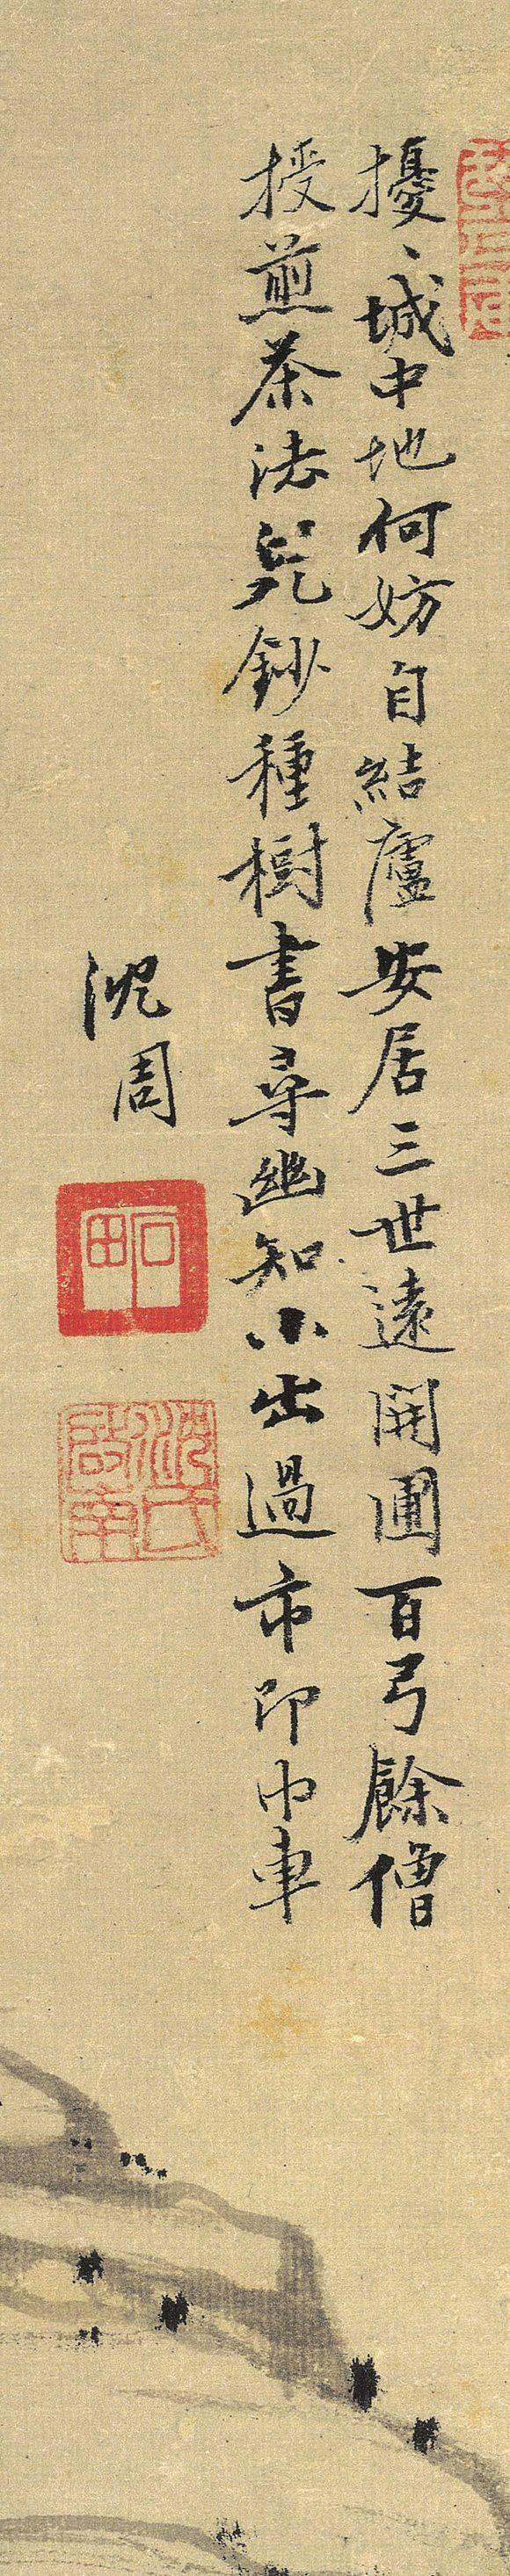 擾〻城中地何妨自結廬安居三世遠開圃百弓餘僧
授煎茶法兒鈔種樹書尋幽知小出過市印巾車
沈周
石田
沈氏啟南